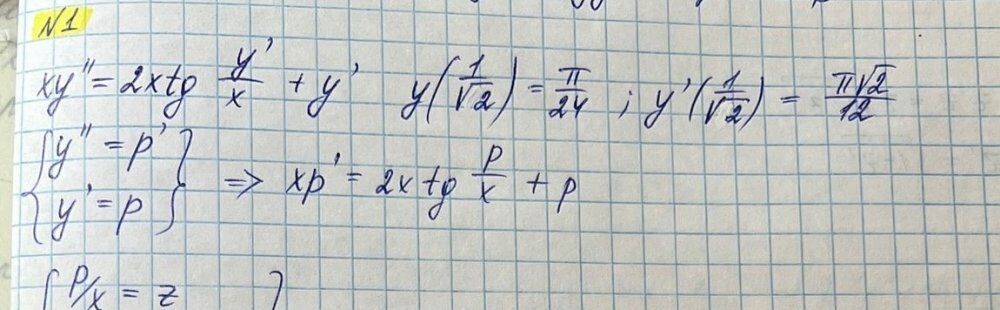 N1
xy'' = 2x tg y'/x + y' y(1/√2) = π/24 ; y'(1/√2) = π√2/12
{y'' = p'
{y' = p} => xp' = 2x tg p/x + p
{p/x = z